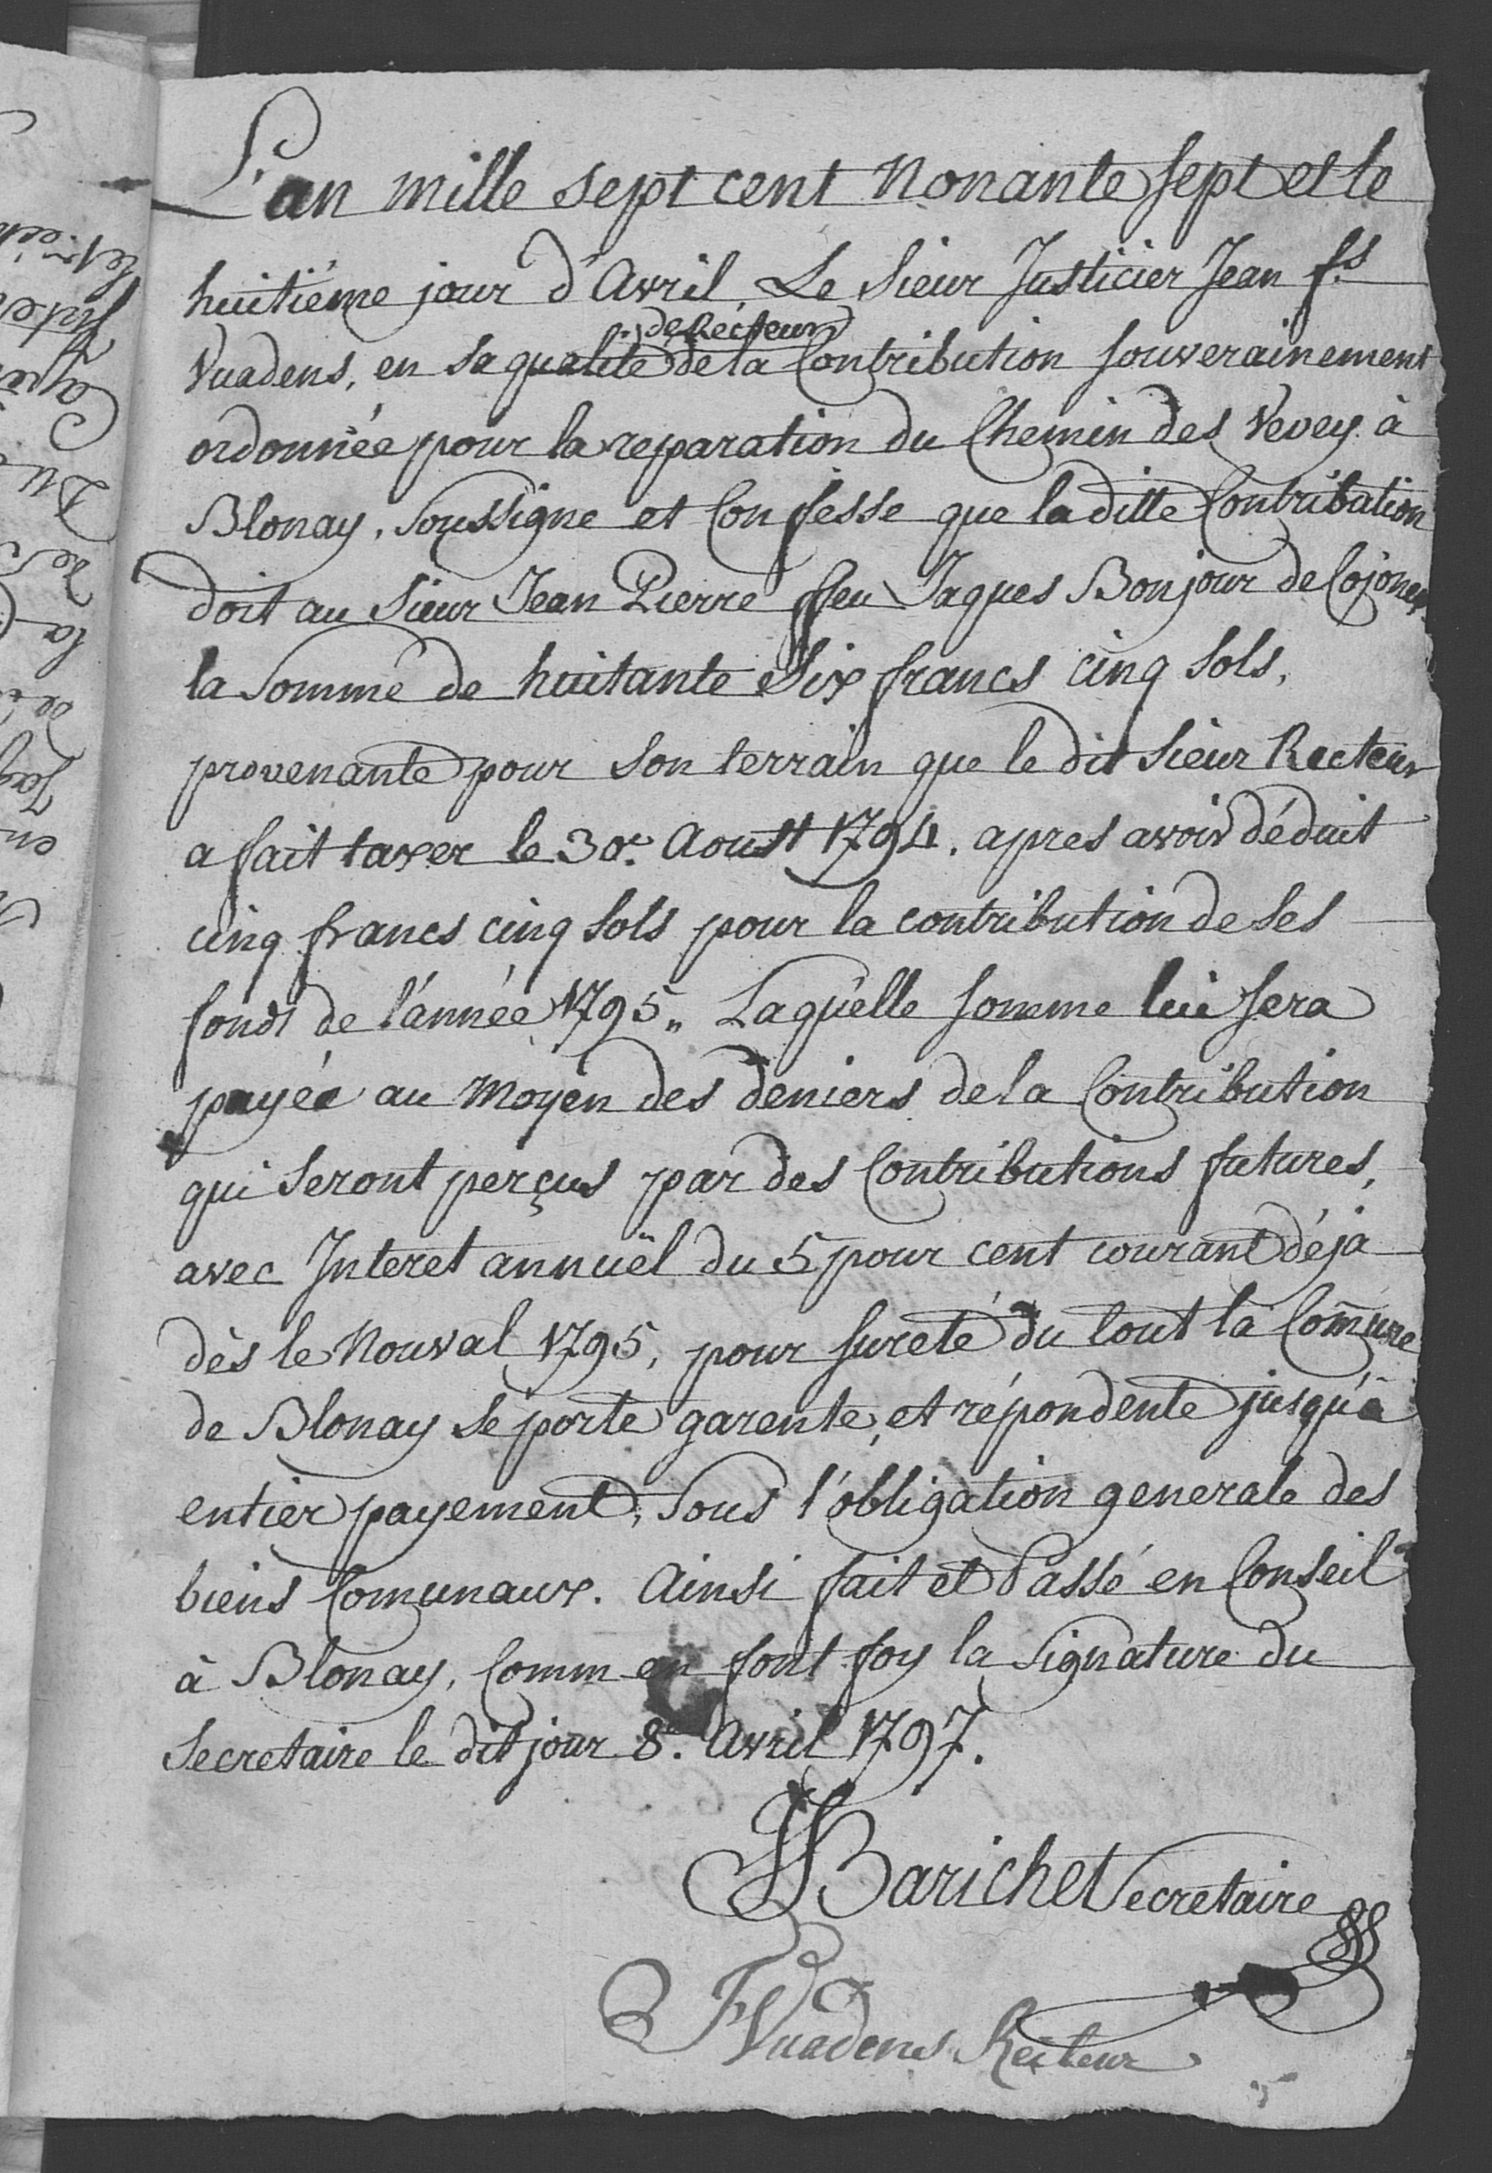 L'an mille sept cent Nonante sept et le
huitiéme jour d'Avril, Le Sieur Justicier Jean fs
Vuadens, en sa qualité de Recteur de la Contribution souverainement
ordonnée pour la reparation du Chemin des Vevey à
Blonay, Soussigne et Confesse que la ditte Contribution
doit au Sieur Jean Pierre ffeu Jaques Bonjour de Cojonex
la Somme de huitante Six francs cinq Sols,
provenante pour Son terrain que le dit Sieur Recteur
a fait taxer le 30e. Aoust 1794. apres avoir déduit
cinq francs cinq Sols pour la contribution de Ses
fonds de l'année 1795,, Laquelle somme lui sera
payée au Moyen des deniers de la Contribution
qui Seront perçus par des Contributions futures,
avec Interet annuël du 5 pour cent courant déja
dès le Nouval 1795, pour sureté du tout la Com̃une
de Blonay Se porte garente, et répondente jusqu'à
entier payement, Sous l'obligation generale des
biens Comunaux. Ainsi fait et Passé en Conseil
à Blonay, Comm en font foy la Signature du
Secretaire le dit jour 8e. Avril 1797.
Barichet Secretaire
JF Vuadens Recteur